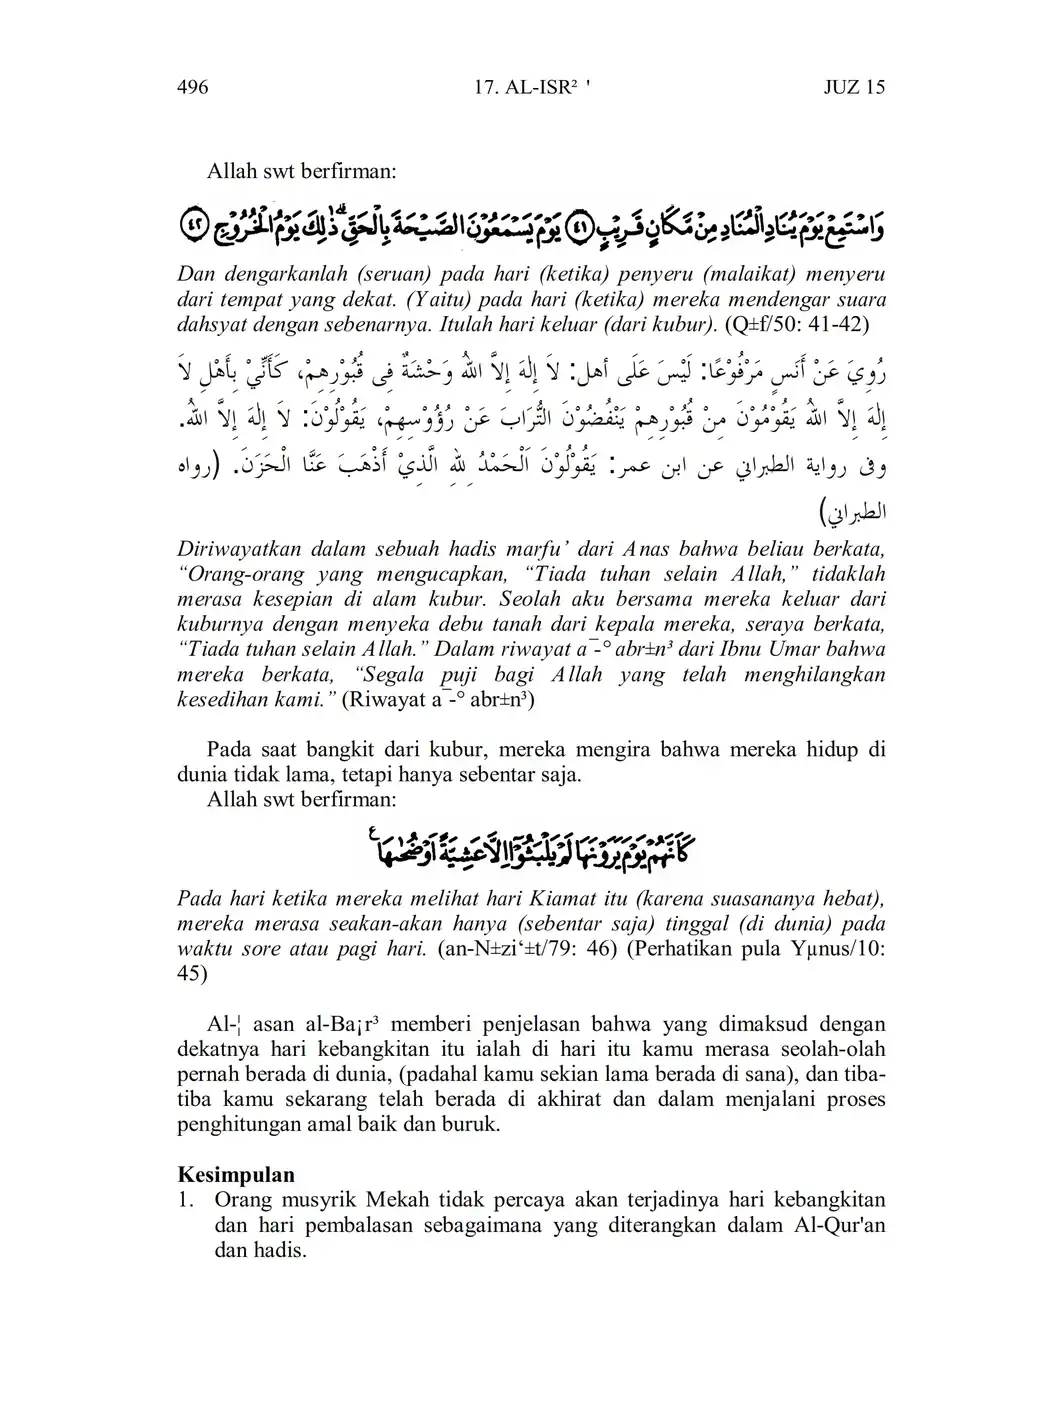 496 17. AL-ISR² ' JUZ 15
Allah swt berfirman:
وَاسْتَمِعْ يَوْمَ يُنَادِ الْمُنَادِ مِنْ مَّكَانٍ قَرِيْبٍ ﴿٤١﴾ يَوْمَ يَسْمَعُوْنَ الصَّيْحَةَ بِالْحَقِّ ۗ ذٰلِكَ يَوْمُ الْخُرُوْجِ ﴿٤٢﴾
Dan dengarkanlah (seruan) pada hari (ketika) penyeru (malaikat) menyeru
dari tempat yang dekat. (Yaitu) pada hari (ketika) mereka mendengar suara
dahsyat dengan sebenarnya. Itulah hari keluar (dari kubur). (Q±f/50: 41-42)
رُوِيَ عَنْ أَنَسٍ مَرْفُوْعًا: لَيْسَ عَلَى أهل: لاَ إِلٰهَ إِلاَّ اللهُ وَحْشَةٌ فِى قُبُوْرِهِمْ، كَأَنِّيْ بِأَهْلِ لاَ
إِلٰهَ إِلاَّ اللهُ يَقُوْمُوْنَ مِنْ قُبُوْرِهِمْ يَنْفُضُوْنَ التُّرَابَ عَنْ رُؤُوْسِهِمْ، يَقُوْلُوْنَ: لاَ إِلٰهَ إِلاَّ اللهُ.
وفى رواية الطبراني عن ابن عمر: يَقُوْلُوْنَ اَلْحَمْدُ لِلهِ الَّذِيْ أَذْهَبَ عَنَّا الْحَزَنَ. (رواه
الطبراني)
Diriwayatkan dalam sebuah hadis marfu’ dari Anas bahwa beliau berkata,
“Orang-orang yang mengucapkan, “Tiada tuhan selain Allah,” tidaklah
merasa kesepian di alam kubur. Seolah aku bersama mereka keluar dari
kuburnya dengan menyeka debu tanah dari kepala mereka, seraya berkata,
“Tiada tuhan selain Allah.” Dalam riwayat a¯-° abr±n³ dari Ibnu Umar bahwa
mereka berkata, “Segala puji bagi Allah yang telah menghilangkan
kesedihan kami.” (Riwayat a¯-° abr±n³)
Pada saat bangkit dari kubur, mereka mengira bahwa mereka hidup di
dunia tidak lama, tetapi hanya sebentar saja.
Allah swt berfirman:
كَاَنَّهُمْ يَوْمَ يَرَوْنَهَا لَمْ يَلْبَثُوْٓا اِلَّا عَشِيَّةً اَوْ ضُحٰىهَا ࣖ
Pada hari ketika mereka melihat hari Kiamat itu (karena suasananya hebat),
mereka merasa seakan-akan hanya (sebentar saja) tinggal (di dunia) pada
waktu sore atau pagi hari. (an-N±zi‘±t/79: 46) (Perhatikan pula Yµnus/10:
45)
Al-¦ asan al-Ba¡r³ memberi penjelasan bahwa yang dimaksud dengan
dekatnya hari kebangkitan itu ialah di hari itu kamu merasa seolah-olah
pernah berada di dunia, (padahal kamu sekian lama berada di sana), dan tiba-
tiba kamu sekarang telah berada di akhirat dan dalam menjalani proses
penghitungan amal baik dan buruk.
Kesimpulan
1. Orang musyrik Mekah tidak percaya akan terjadinya hari kebangkitan
dan hari pembalasan sebagaimana yang diterangkan dalam Al-Qur'an
dan hadis.